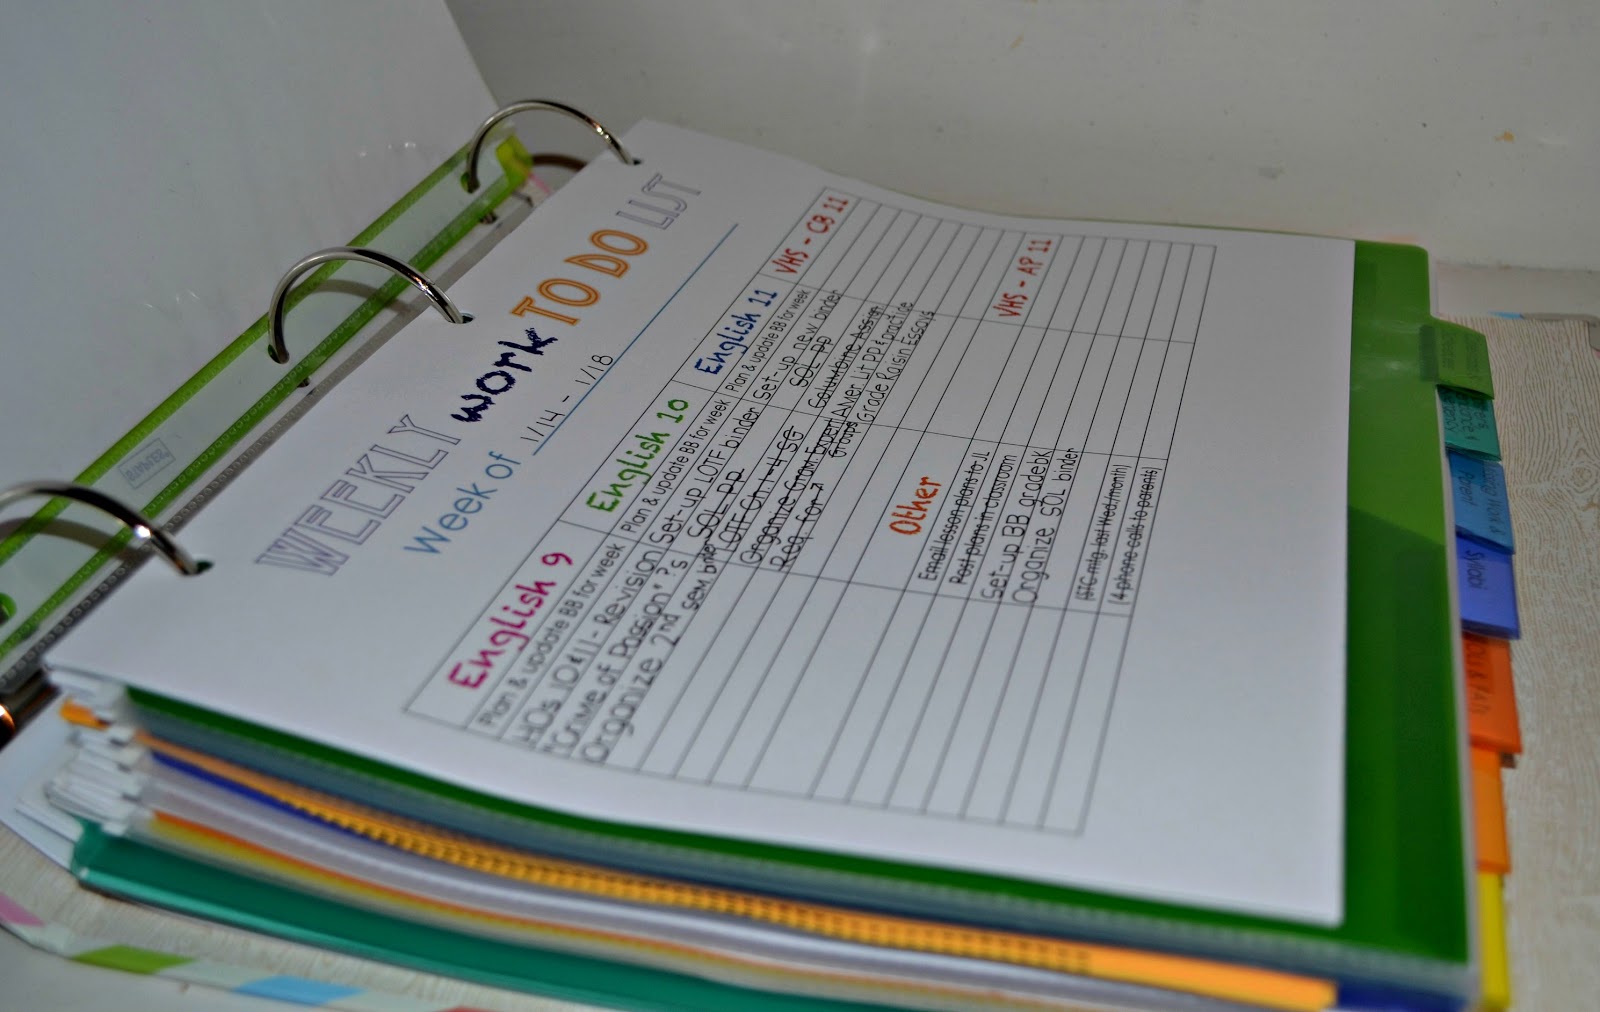 WEEKLY work TO DO LIST
Week of 1/14 - 1/18
English 9
Plan & update BB for week
HOs 10 & 11 - Revision
"Crime of Passion" ?s
Organize 2nd sem. binder
English 10
Plan & update BB for week
Set-up LOTF binder
SOL pp
LOTF Ch. 1-4 SG
Organize Gram Expert Groups
Req for
English 11
Plan & update BB for week
Set-up new binder
SOL pp
Columbine Assign
Amer Lit PP & practice
Grade Raisin Essays
VHS - CB 11
VHS - AP 11
Other
Email lesson plans to JL
Post plans in classroom
Set-up BB gradebk
Organize SOL binder
(STC mtg. last Wed/month)
(4 phone calls to parents)
Syllabi